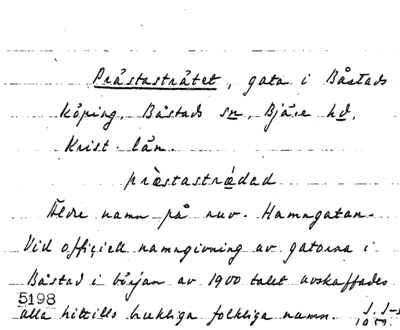 Pråstastråtet, gata i Båstads
köping, Båstads sn, Bjäre hd,
Krist. län.
pràstastrǻdəd
Äldre namn på nuv. Hamngatan.
Vid officiell namngivning av gatorna i
Båstad i början av 1900 talet avskaffades
5198 alla hittills brukliga folkliga namn.